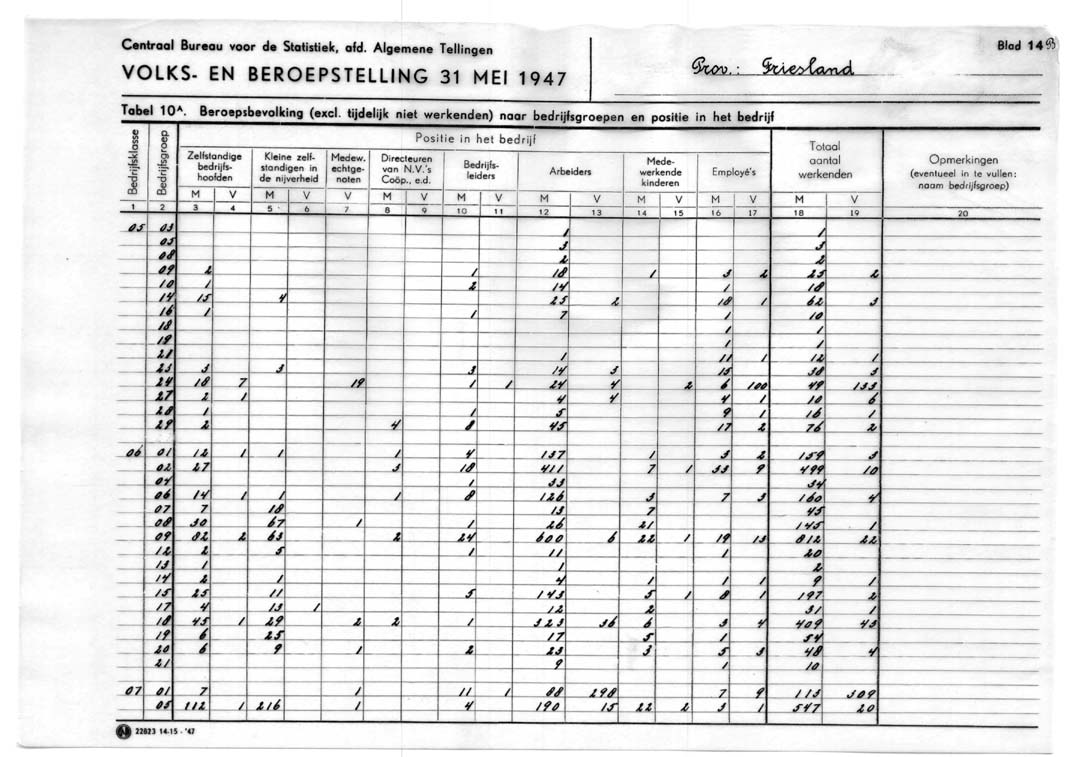 Centraal Bureau voor de Statistiek, afd. Algemene Tellingen
Blad 14
VOLKS- EN BEROEPSTELLING 31 MEI 1947
Prov.: Friesland
Tabel 10ᴬ. Beroepsbevolking (excl. tijdelijk niet werkenden) naar bedrijfsgroepen en positie in het bedrijf
Bedrijfsklasse Bedrijfsgroep Positie in het bedrijf Totaal aantal werkenden Opmerkingen (eventueel in te vullen: naam bedrijfsgroep)
Zelfstandige bedrijfs-hoofden Kleine zelf-standigen in de nijverheid Medew. echtge-noten Directeuren van N.V.'s Coöp., e.d. Bedrijfs-leiders Arbeiders Mede-werkende kinderen Employé's
M V M V V M V M V M V M V M V M V
1 2 3 4 5 6 7 8 9 10 11 12 13 14 15 16 17 18 19 20
05 03 1 1
05 3 3
08 2 2
09 2 1 18 1 3 2 25 2
10 1 2 14 1 18
14 15 4 25 2 18 1 62 3
16 1 1 7 1 10
18 1 1
19 1 1
21 1 11 1 12 1
23 3 3 3 14 3 15 38 3
24 18 7 19 1 1 24 4 2 6 100 49 133
27 2 1 4 4 4 1 10 6
28 1 1 5 9 1 16 1
29 2 4 8 45 17 2 76 2
06 01 12 1 1 1 4 137 1 3 2 159 3
02 27 3 18 411 7 1 33 9 499 10
04 1 33 34
06 14 1 1 1 8 126 3 7 3 160 4
07 7 18 13 7 45
08 30 67 1 1 26 21 145 1
09 82 2 63 2 24 600 6 22 1 19 13 812 22
12 2 5 1 11 1 20
13 1 1 2
14 2 1 4 1 1 1 9 1
15 25 11 5 143 5 1 8 1 197 2
17 4 13 1 12 2 31 1
18 45 1 29 2 2 1 323 36 6 3 4 409 43
19 6 25 17 5 1 54
20 6 9 1 2 23 3 5 3 48 4
21 9 1 10
07 01 7 1 11 1 88 298 7 9 113 309
05 112 1 216 1 4 190 15 22 2 3 1 547 20
22823 14-15 - '47